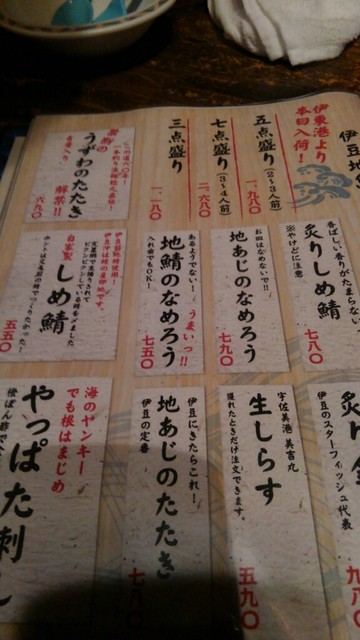 伊豆地
伊東港より
本日入荷！
五点盛り（2～3人前）
一、九八〇
七点盛り（3～4人前）
二、六八〇
三点盛り
一、二八〇
うずわのたたき
解禁！！
六九〇
香ばしい香りがたまらない
※やけどに注意
炙りしめ鯖
七八〇
お皿はなめないで！！
地あじのなめろう
七九〇
あるようでない！うまいっ！！
地鯖のなめろう
入れ歯でもOK！
七五〇
自家製
しめ鯖
五五〇
炙り
伊豆のスターフィッシュ代表
九八〇
宇佐美港 美吉丸
生しらす
獲れたときだけ注文できます。
五九〇
伊豆にきたらこれ！
地あじのたたき
伊豆の定番
七八〇
海のヤンキー
でも根はまじめ
やっぱた刺し